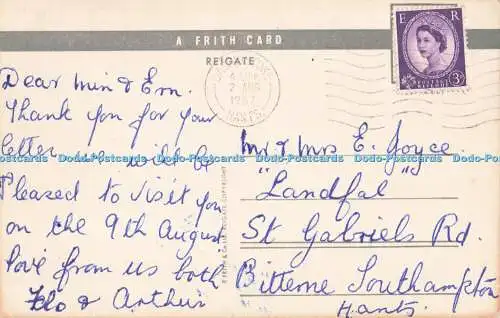 A FRITH CARD
REIGATE
E R
POSTAGE REVENUE
3D
2 AUG
1967
Dear Min & Ern.
Thank you for your
letter we will be
Pleased to visit you
on the 9th August
love from us both
Flo & Arthur
Mr & Mrs E. Joyce
"Landfal"
St Gabriels Rd.
Bitterne Southampton
Hants.
Dodo-Postcards Dodo-Postcards Dodo-Postcards Dodo-Postcards Dodo-Postcards Dodo-Postcards